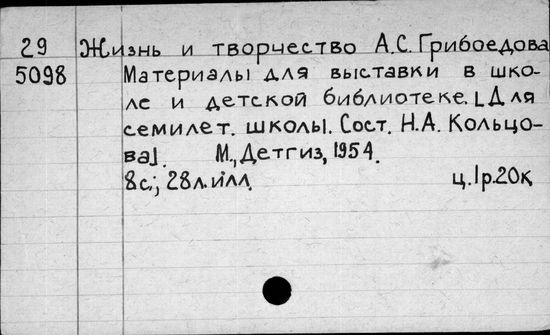 29 Жизнь и творчество А.С. Грибоедова
5098 Материалы для выставки в шко-
ле и детской библиотеке. [Для
семилет. школы. Сост. Н.А. Кольцо-
ва]. М., Детгиз, 1954.
8с.; 28л. илл. ц. 1р. 20к